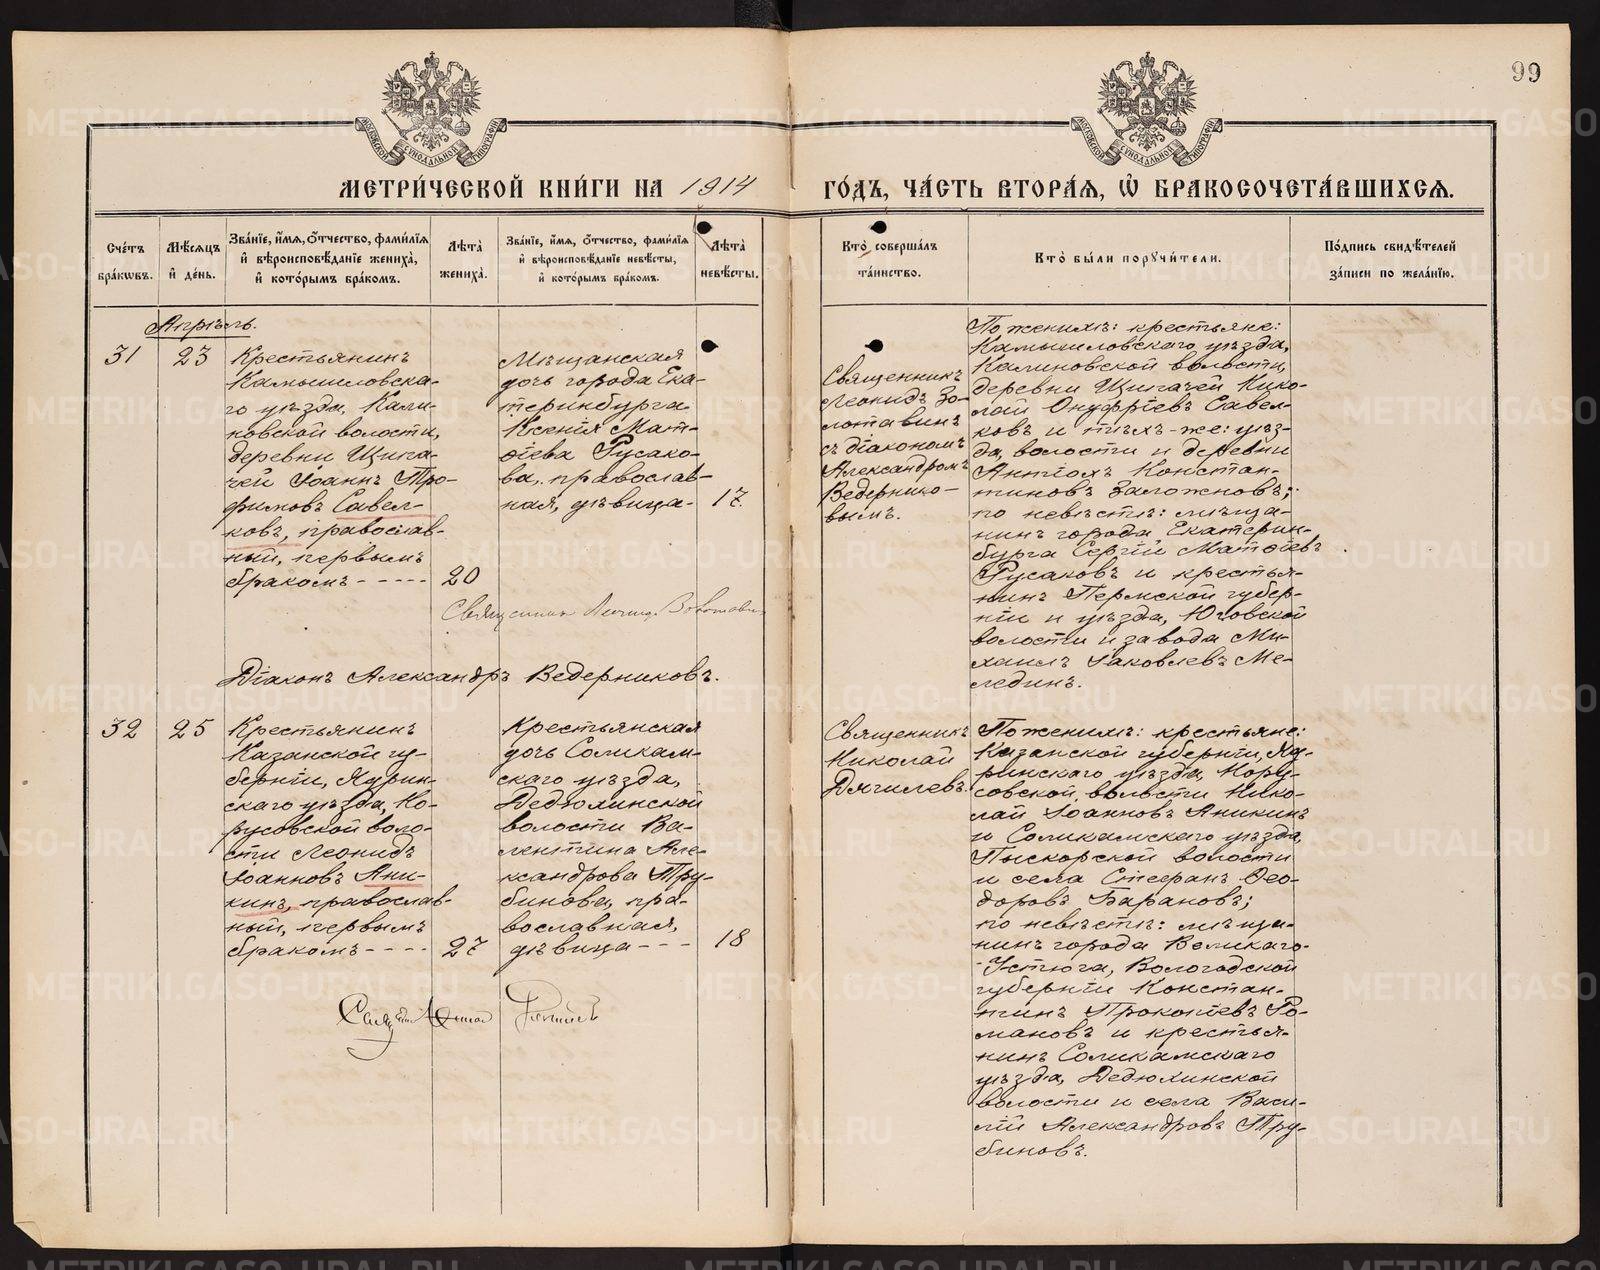 99
МЕТРИ́ЧЕСКОЙ КНИ́ГИ НА 1914 ГО́ДЪ, ЧА́СТЬ ВТОРА́Я, Ѡ БРАКОСОЧЕТА́ВШИХСЯ.
Сче́тъ бра́кѡвъ.
Мѣ́сяцъ и҆ де́нь.
Зва́нїе, и҆́мя, ѻ҆́тчество, фами́лїя и҆ вѣроисповѣ́данїе жениха̀, и҆ кото́рымъ бра́комъ.
Лѣ́та жениха̀.
Зва́нїе, и҆́мя, ѻ҆́тчество, фами́лїя и҆ вѣроисповѣ́данїе невѣ́сты, и҆ кото́рымъ бра́комъ.
Лѣ́та невѣ́сты.
Кто̀ соверша́лъ та́инство.
Кто̀ бы́ли порꙋчи́тели.
По́дпись свидѣ́телей за́писи по жела́нїю.
Апрѣль.
31
23
Крестьянинъ
Камышловска-
го уѣзда, Кали-
новской волости,
деревни Щипа-
чей Іоаннъ Тро-
фимовъ Савел-
ковъ, православ-
ный, первымъ
бракомъ - - - - -
20
Мѣщанская
дочь города Ека-
теринбурга
Ксенія Мат-
ѳіева Русако-
ва, православ-
ная, дѣвица-
17.
Священникъ
Леонидъ Зо-
лотавинъ
съ діакономъ
Александромъ
Ведернико-
вымъ.
По женихѣ: крестьяне:
Камышловскаго уѣзда,
Калиновской волости,
деревни Щипачей Нико-
лай Онуфріевъ Савел-
ковъ и тѣхъ-же: уѣз-
да, волости и деревни
Антіохъ Констан-
тиновъ Заложновъ;
по невѣстѣ: мѣща-
нинъ города Екатерин-
бурга Сергій Матѳіевъ
Русаковъ и крестья-
нинъ Пермской губер-
ніи и уѣзда, Юговской
волости и завода Ми-
хаилъ Іаковлевъ Ме-
лединъ.
Священникъ Леонид. Золотавин
Діаконъ Александръ Ведерниковъ.
32
25
Крестьянинъ
Казанской гу-
берніи, Ядрин-
скаго уѣзда, Но-
русовской воло-
сти Леонидъ
Іоанновъ Ани-
кинъ, православ-
ный, первымъ
бракомъ - - - -
27
Крестьянская
дочь Соликам-
скаго уѣзда,
Дедюхинской
волости Ва-
лентина Але-
ксандрова Тру-
бинова, пра-
вославная,
дѣвица - - -
18
Священникъ
Николай
Дягилевъ.
По женихѣ: крестьяне:
Казанской губерніи, Яд-
ринскаго уѣзда, Нору-
совской волости Нико-
лай Іоанновъ Аникинъ
и Соликамскаго уѣзда,
Пыскорской волости
и села Стефанъ Ѳео-
доровъ Барановъ;
по невѣстѣ: мѣща-
нинъ города Великаго-
Устюга, Вологодской
губерніи Констан-
тинъ Прокопіевъ Ро-
мановъ и крестья-
нинъ Соликамскаго
уѣзда, Дедюхинской
волости и села Васи-
лій Александровъ Тру-
биновъ.
METRIKI.GASO-URAL.RU